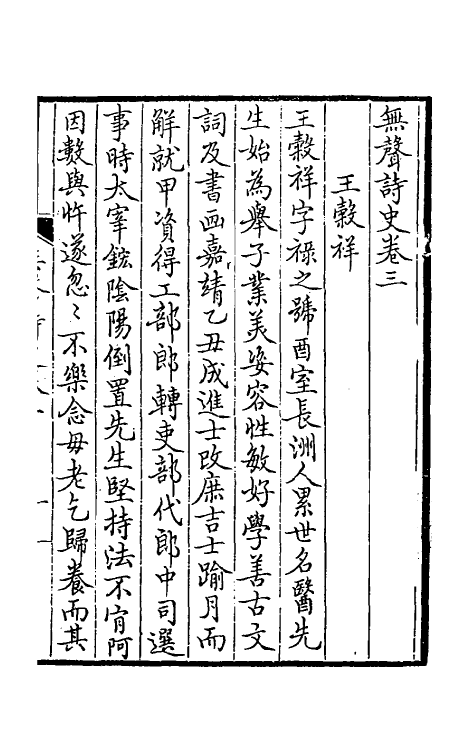 無聲詩史卷三
王穀祥
王穀祥字祿之號酉室長洲人累世名醫先
生始為舉子業美姿容性敏好學善古文
詞及書画嘉靖乙丑成進士改庶吉士踰月而
解就甲資得工部郎轉吏部代郎中司選
事時太宰鋐陰陽倒置先生堅持法不肎阿
因數與忤遂忽〻不樂念毋老乞歸養而其